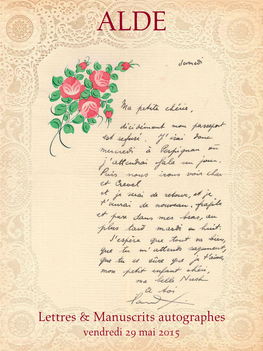 ALDE
Samedi
Ma petite chérie,
décidément mon passeport
est refusé. J'irai donc
mercredi à Perpignan où
j'attendrai Gala un jour.
Puis nous irons voir Char
et Crevel
et je serai de retour, et je
t'aurai de nouveau, fragile
et pure dans mes bras, au
plus tard mardi en huit.
J'espère que tout va bien,
que tu m'attends sagement,
que tu es sûre que je t'aime,
mon petit enfant chéri,
ma belle Nusch
A toi
Lettres & Manuscrits autographes
vendredi 29 mai 2015